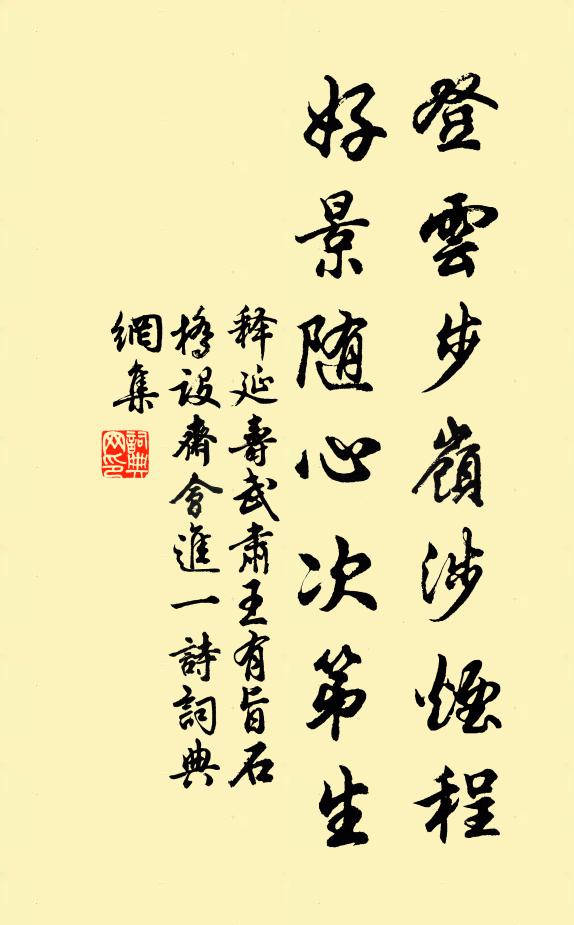 登雲步嶺涉煙程
好景随心次第生
释延壽武肅王有旨石
橋設齋會進一詩詞典
網集
詞典
网印